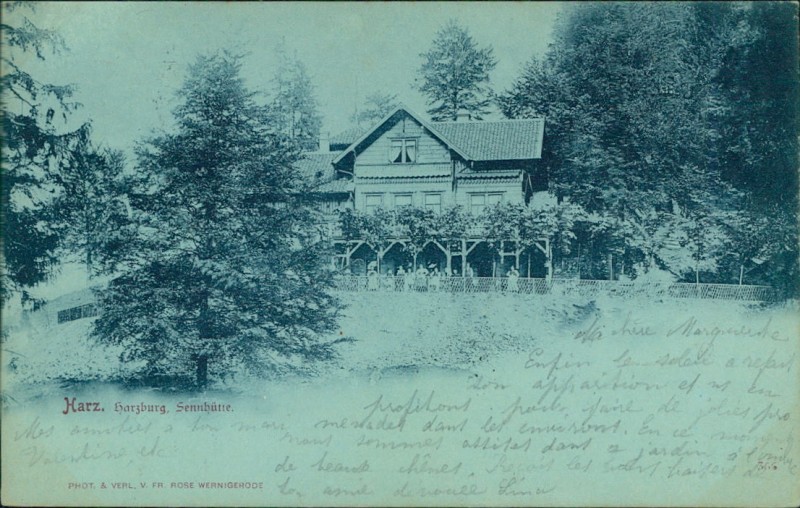 Ma chère Marguerite
Enfin le soleil a refait
son apparition et ns en
profitons pour faire de jolies pro
menades dans les environs. En ce mom
nous sommes assises dans le jardin à l'ombre
de beaux chênes. Reçois les bons baisers de
ton amie dévouée
Mes amitiés à ton mari
Valentine, etc
Harz. Harzburg, Sennhütte.
PHOT. & VERL. V. FR. ROSE WERNIGERODE